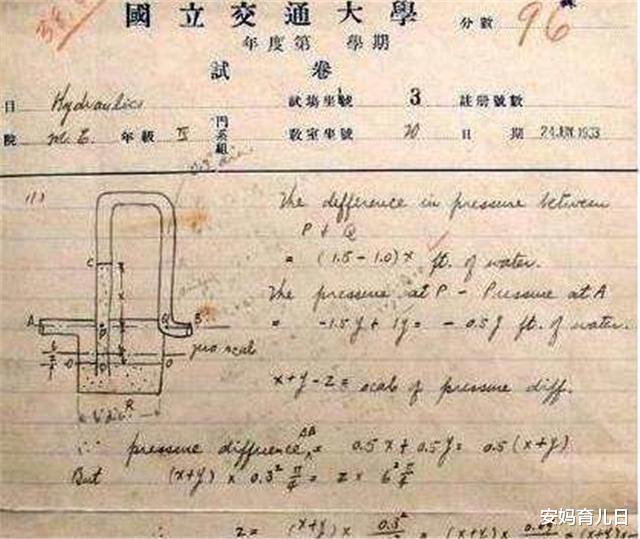 國立交通大學
分數 96
年度第 學期
試卷
目 Hydraulics 試場坐號 3 註册號數
院 M.E. 年級 IV 門系組 教室坐號 20 日期 24 JUN 1933
(1) The difference in pressure between
P & Q
= (1.5 - 1.0) x ft. of water.
The pressure at P - Pressure at A
= -1.5y + 1y = -0.5y ft. of water.
C
A
B
P
Q
zero scale
O
O
x + y - z = scale of pressure diff.
R
6" dia.
∴ pressure difference AB = 0.5x + 0.5y = 0.5(x+y)
But (x+y) x 0.3² π/4 = z x 6² π/4
∴ z = (x+y) x 0.3²
安妈育儿日